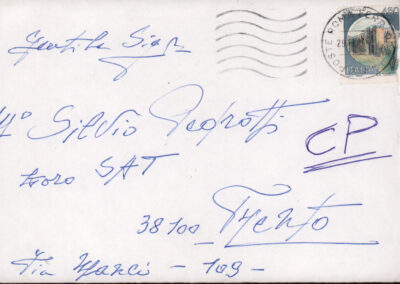 Gentile Sig.
M° Silvio Pedrotti
Coro SAT
CP
38100 Trento
Via Manci - 109 -
POSTE ROMA FERR
ITALIA
450